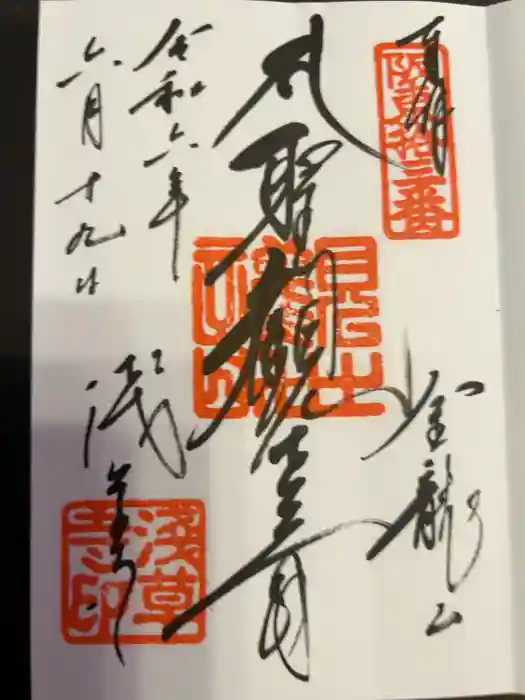 奉拝
坂東拾三番
金龍山
聖観世音
浅草寺
淺草寺印
令和六年
六月十九日